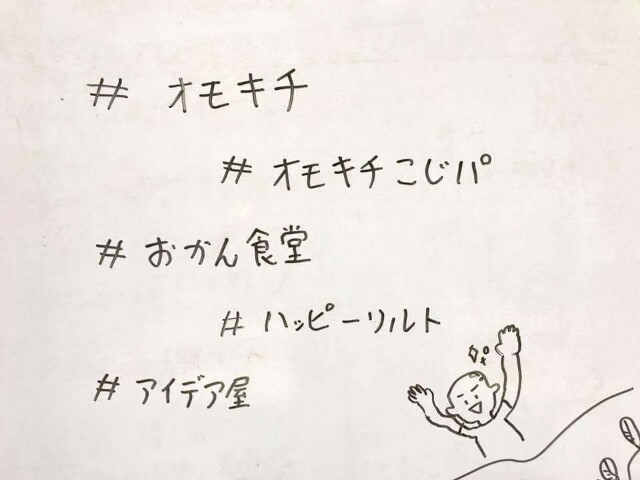 # オモキチ
# オモキチこじパ
# おかん食堂
# ハッピーソルト
# アイデア屋